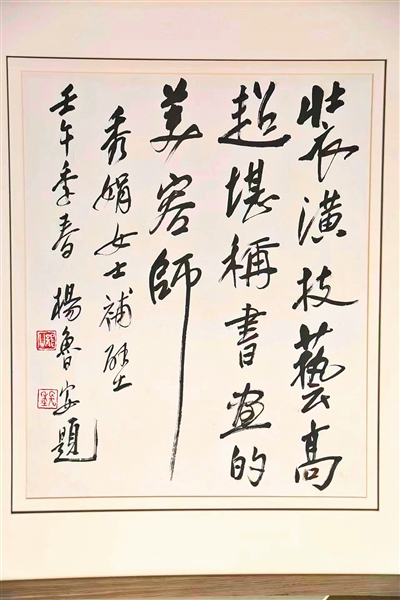 裝潢技藝高
超堪稱書畫的
美容師
秀娟女士補壁
壬午季春 楊魯安題